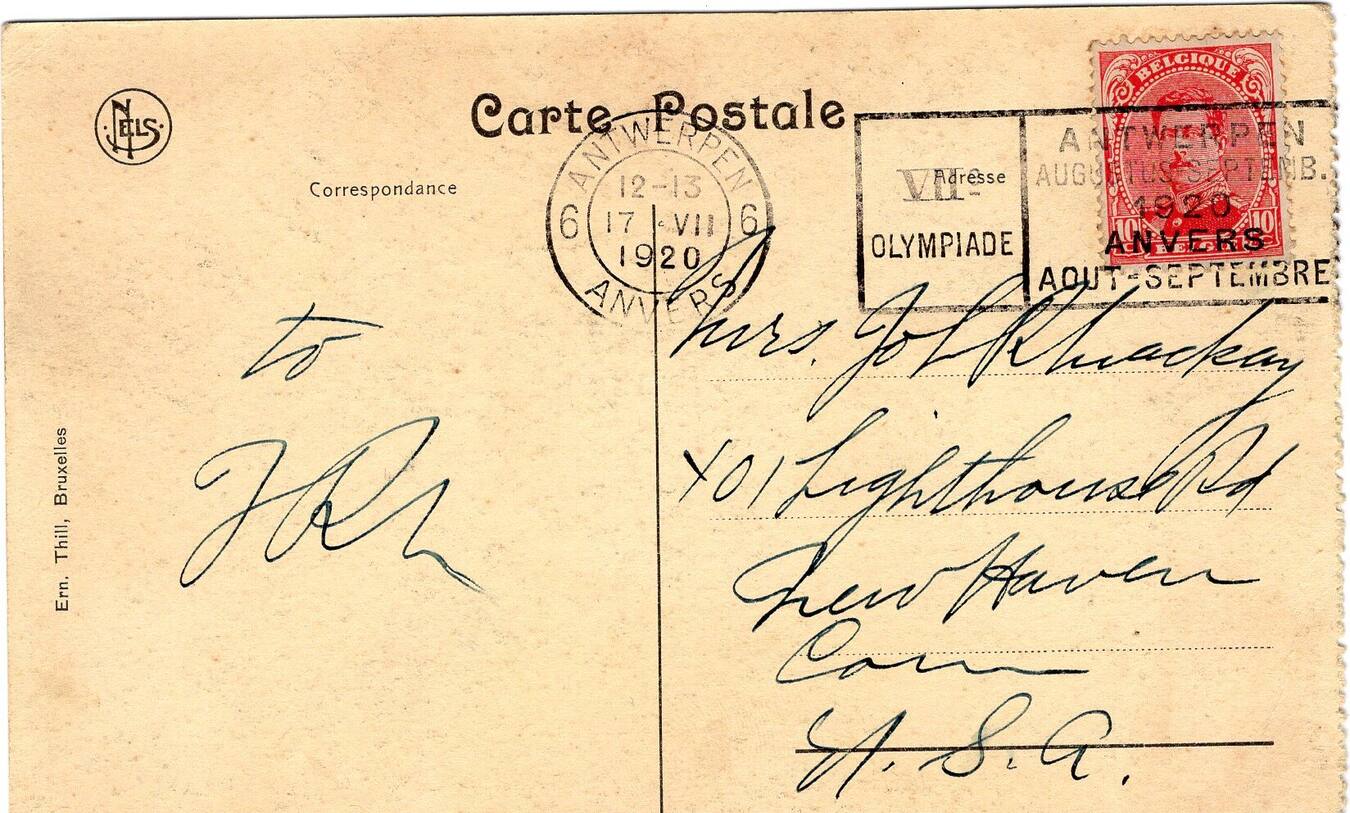 NELS
Carte Postale
Correspondance
ANTWERPEN
12-13
6 17 VII 6
1920
ANVERS
VIIe
Adresse
OLYMPIADE
BELGIQUE
10 10
ANTWERPEN
AUGUSTUS-SEPTEMB.
1920
ANVERS
AOUT-SEPTEMBRE
to
Mrs.
401 Lighthouse Rd
New Haven
Conn
U.S.A.
Ern. Thill, Bruxelles